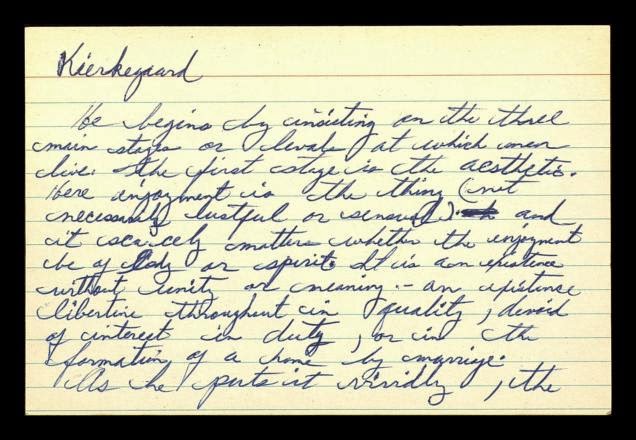 Kierkegaard
He begins by insisting on the three
main stages or levels at which men
live. The first stage is the aesthetic.
Here enjoyment is the thing (not
necessarily lustful or sensual). and
it scarcely matters whether the enjoyment
be of body or spirit. It is an existence
without unity or meaning - an existence
libertine throughout in quality, devoid
of interest in duty, or in the
formation of a home by marriage.
As he puts it vividly, the